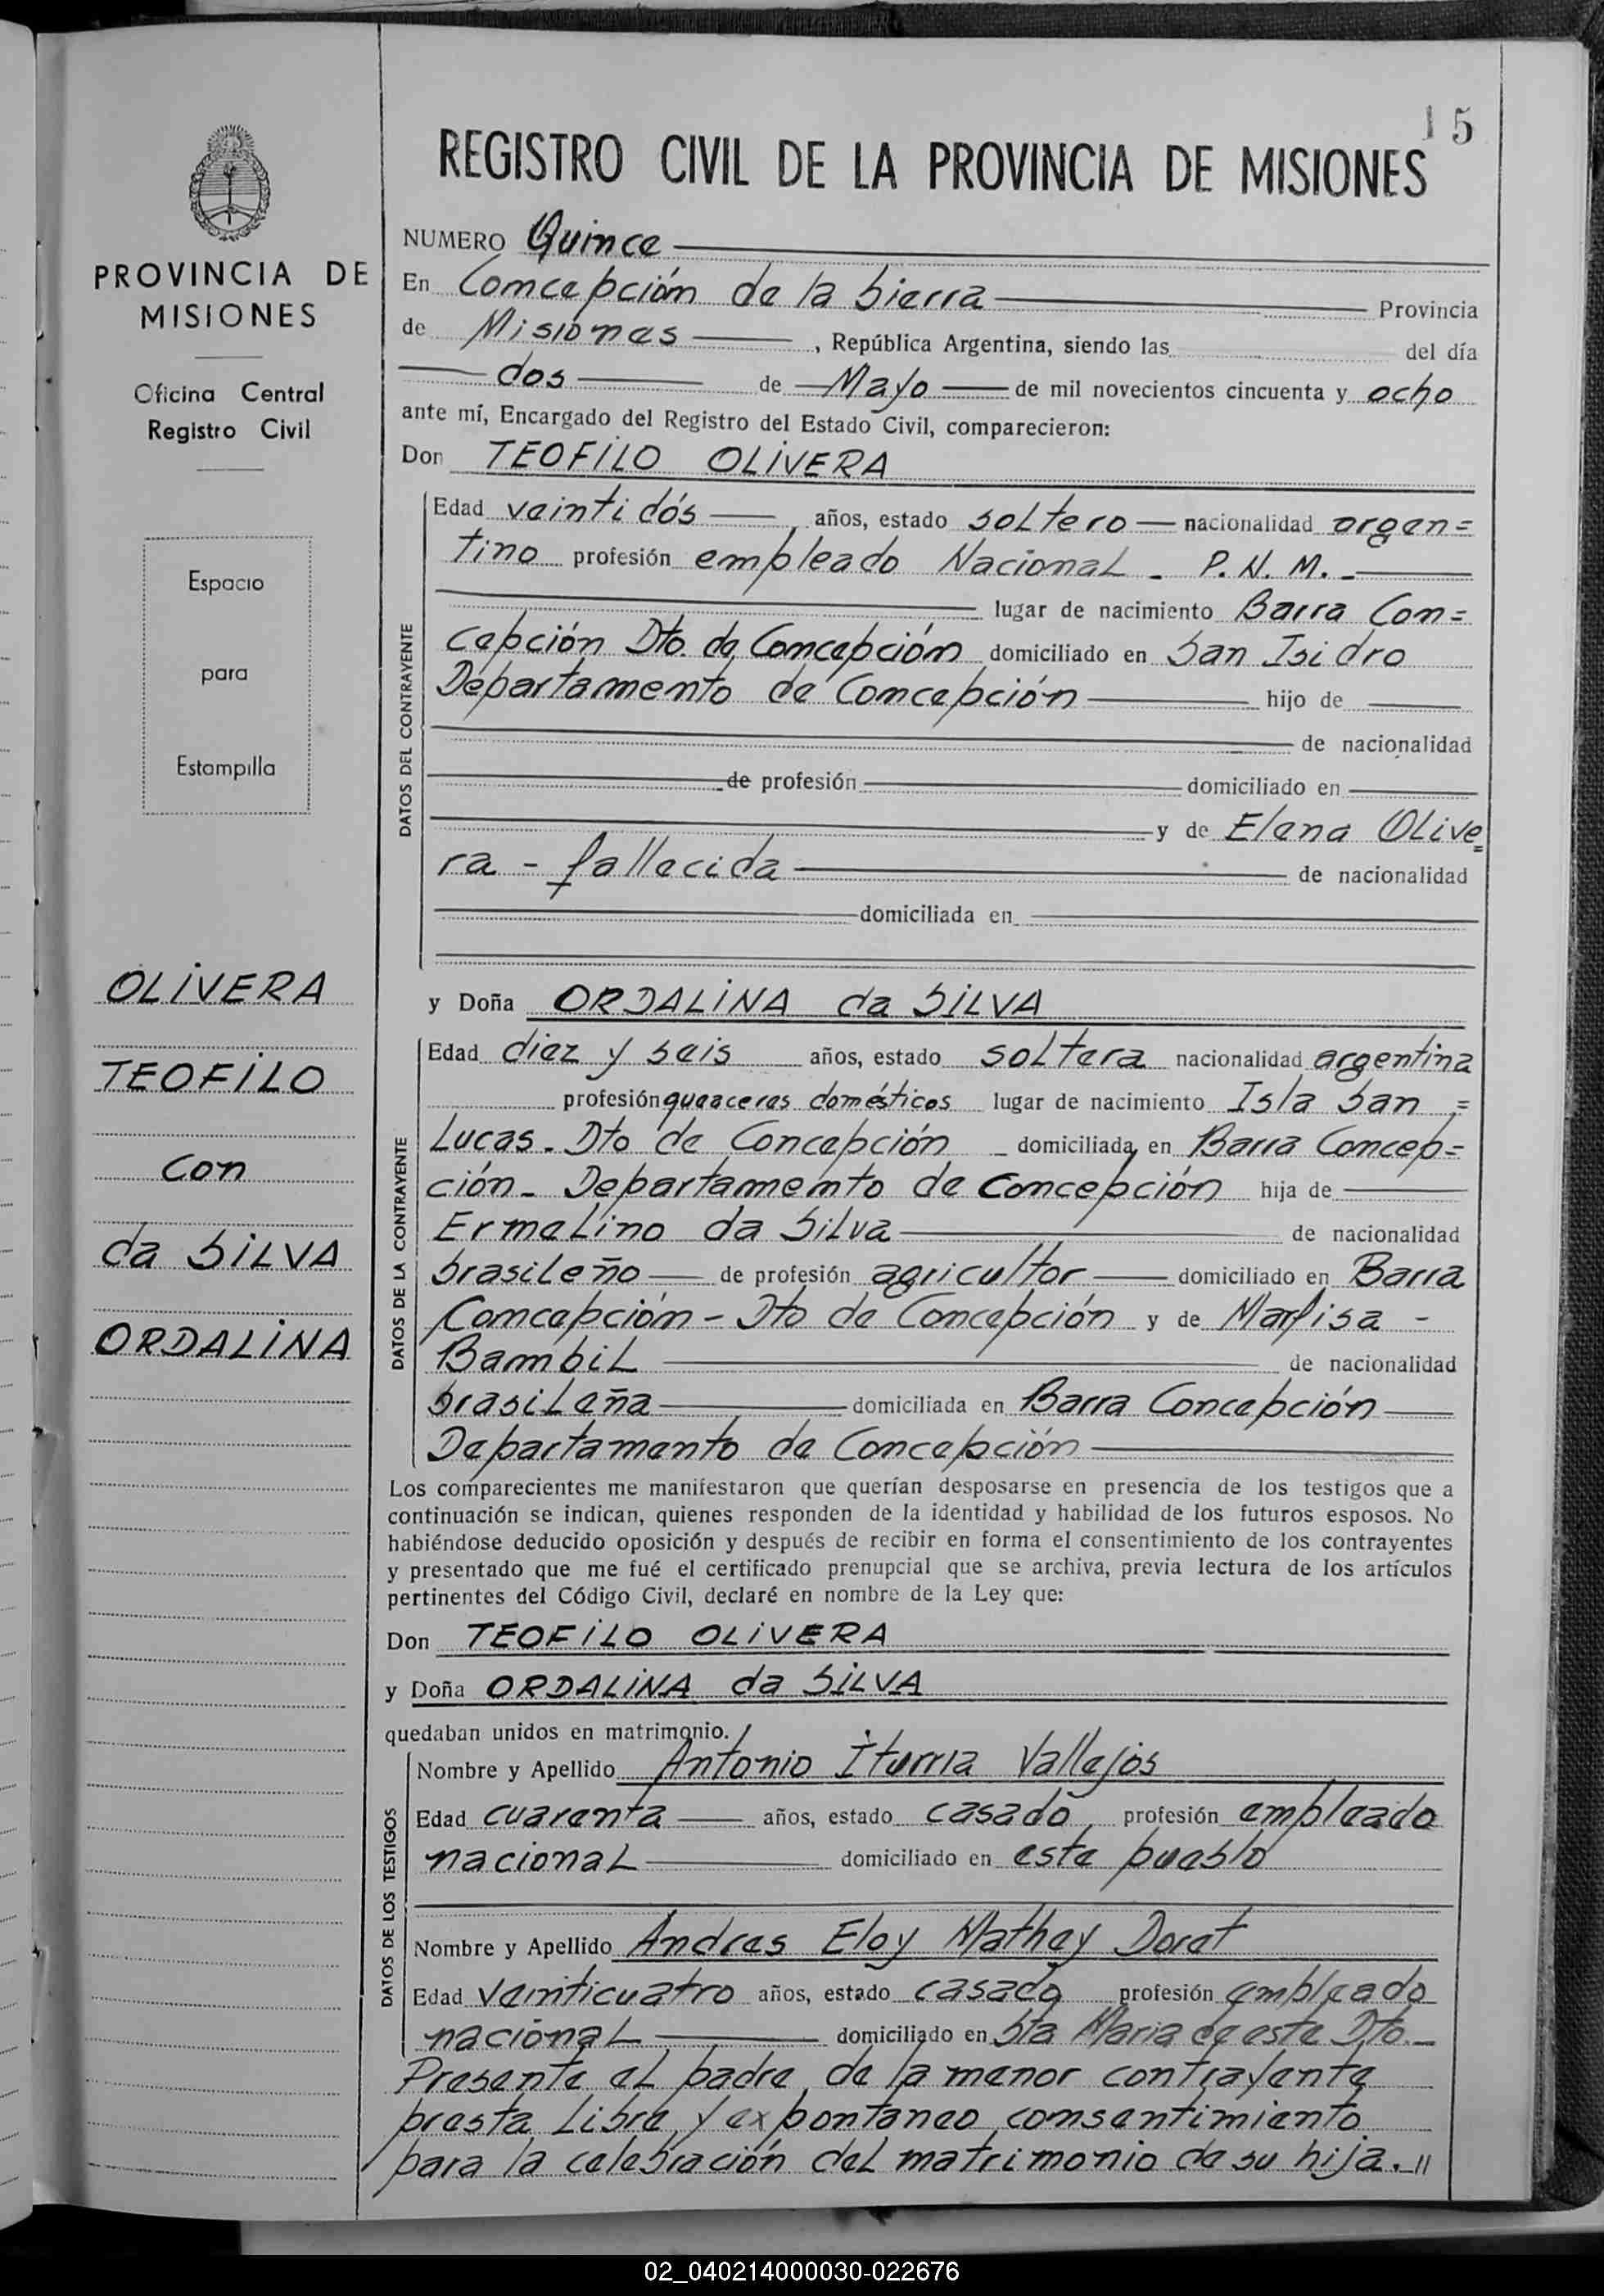 15
REGISTRO CIVIL DE LA PROVINCIA DE MISIONES
PROVINCIA DE
MISIONES
Oficina Central
Registro Civil
Espacio
para
Estampilla
OLIVERA
TEOFILO
con
da SILVA
ORDALINA
NUMERO Quince
En Concepción de la Sierra Provincia
de Misiones, República Argentina, siendo las del día
dos de Mayo de mil novecientos cincuenta y ocho
ante mí, Encargado del Registro del Estado Civil, comparecieron:
Don TEOFILO OLIVERA
DATOS DEL CONTRAYENTE
Edad veinti dós años, estado soltero nacionalidad argen=
tino profesión empleado Nacional - P. N. M. -
lugar de nacimiento Barra Con=
cepción Dto. de Concepción domiciliado en San Isidro
Departamento de Concepción hijo de
de nacionalidad
de profesión domiciliado en
y de Elena Olive=
ra - fallecida de nacionalidad
domiciliada en
y Doña ORDALINA da SILVA
DATOS DE LA CONTRAYENTE
Edad diez y seis años, estado soltera nacionalidad argentina
profesión queaceres domésticos lugar de nacimiento Isla San =
Lucas - Dto de Concepción - domiciliada en Barra Concep=
ción - Departamento de Concepción hija de
Ermelino da Silva de nacionalidad
brasileño de profesión agricultor domiciliado en Barra
Concepción - Dto de Concepción y de Marfisa -
Bambil de nacionalidad
brasileña domiciliada en Barra Concepción
Departamento de Concepción
Los comparecientes me manifestaron que querían desposarse en presencia de los testigos que a
continuación se indican, quienes responden de la identidad y habilidad de los futuros esposos. No
habiéndose deducido oposición y después de recibir en forma el consentimiento de los contrayentes
y presentado que me fué el certificado prenupcial que se archiva, previa lectura de los artículos
pertinentes del Código Civil, declaré en nombre de la Ley que:
Don TEOFILO OLIVERA
y Doña ORDALINA da SILVA
quedaban unidos en matrimonio.
DATOS DE LOS TESTIGOS
Nombre y Apellido Antonio Iturria Vallejos
Edad cuarenta años, estado casado profesión empleado
nacional domiciliado en este pueblo
Nombre y Apellido Andres Eloy Mathey Doret
Edad veinticuatro años, estado casado profesión empleado
nacional domiciliado en Sta Maria de este Dto. -
Presente el padre de la menor contrayente
presta libre y expontaneo consentimiento
para la celebración del matrimonio de su hija.-//
02_040214000030-022676